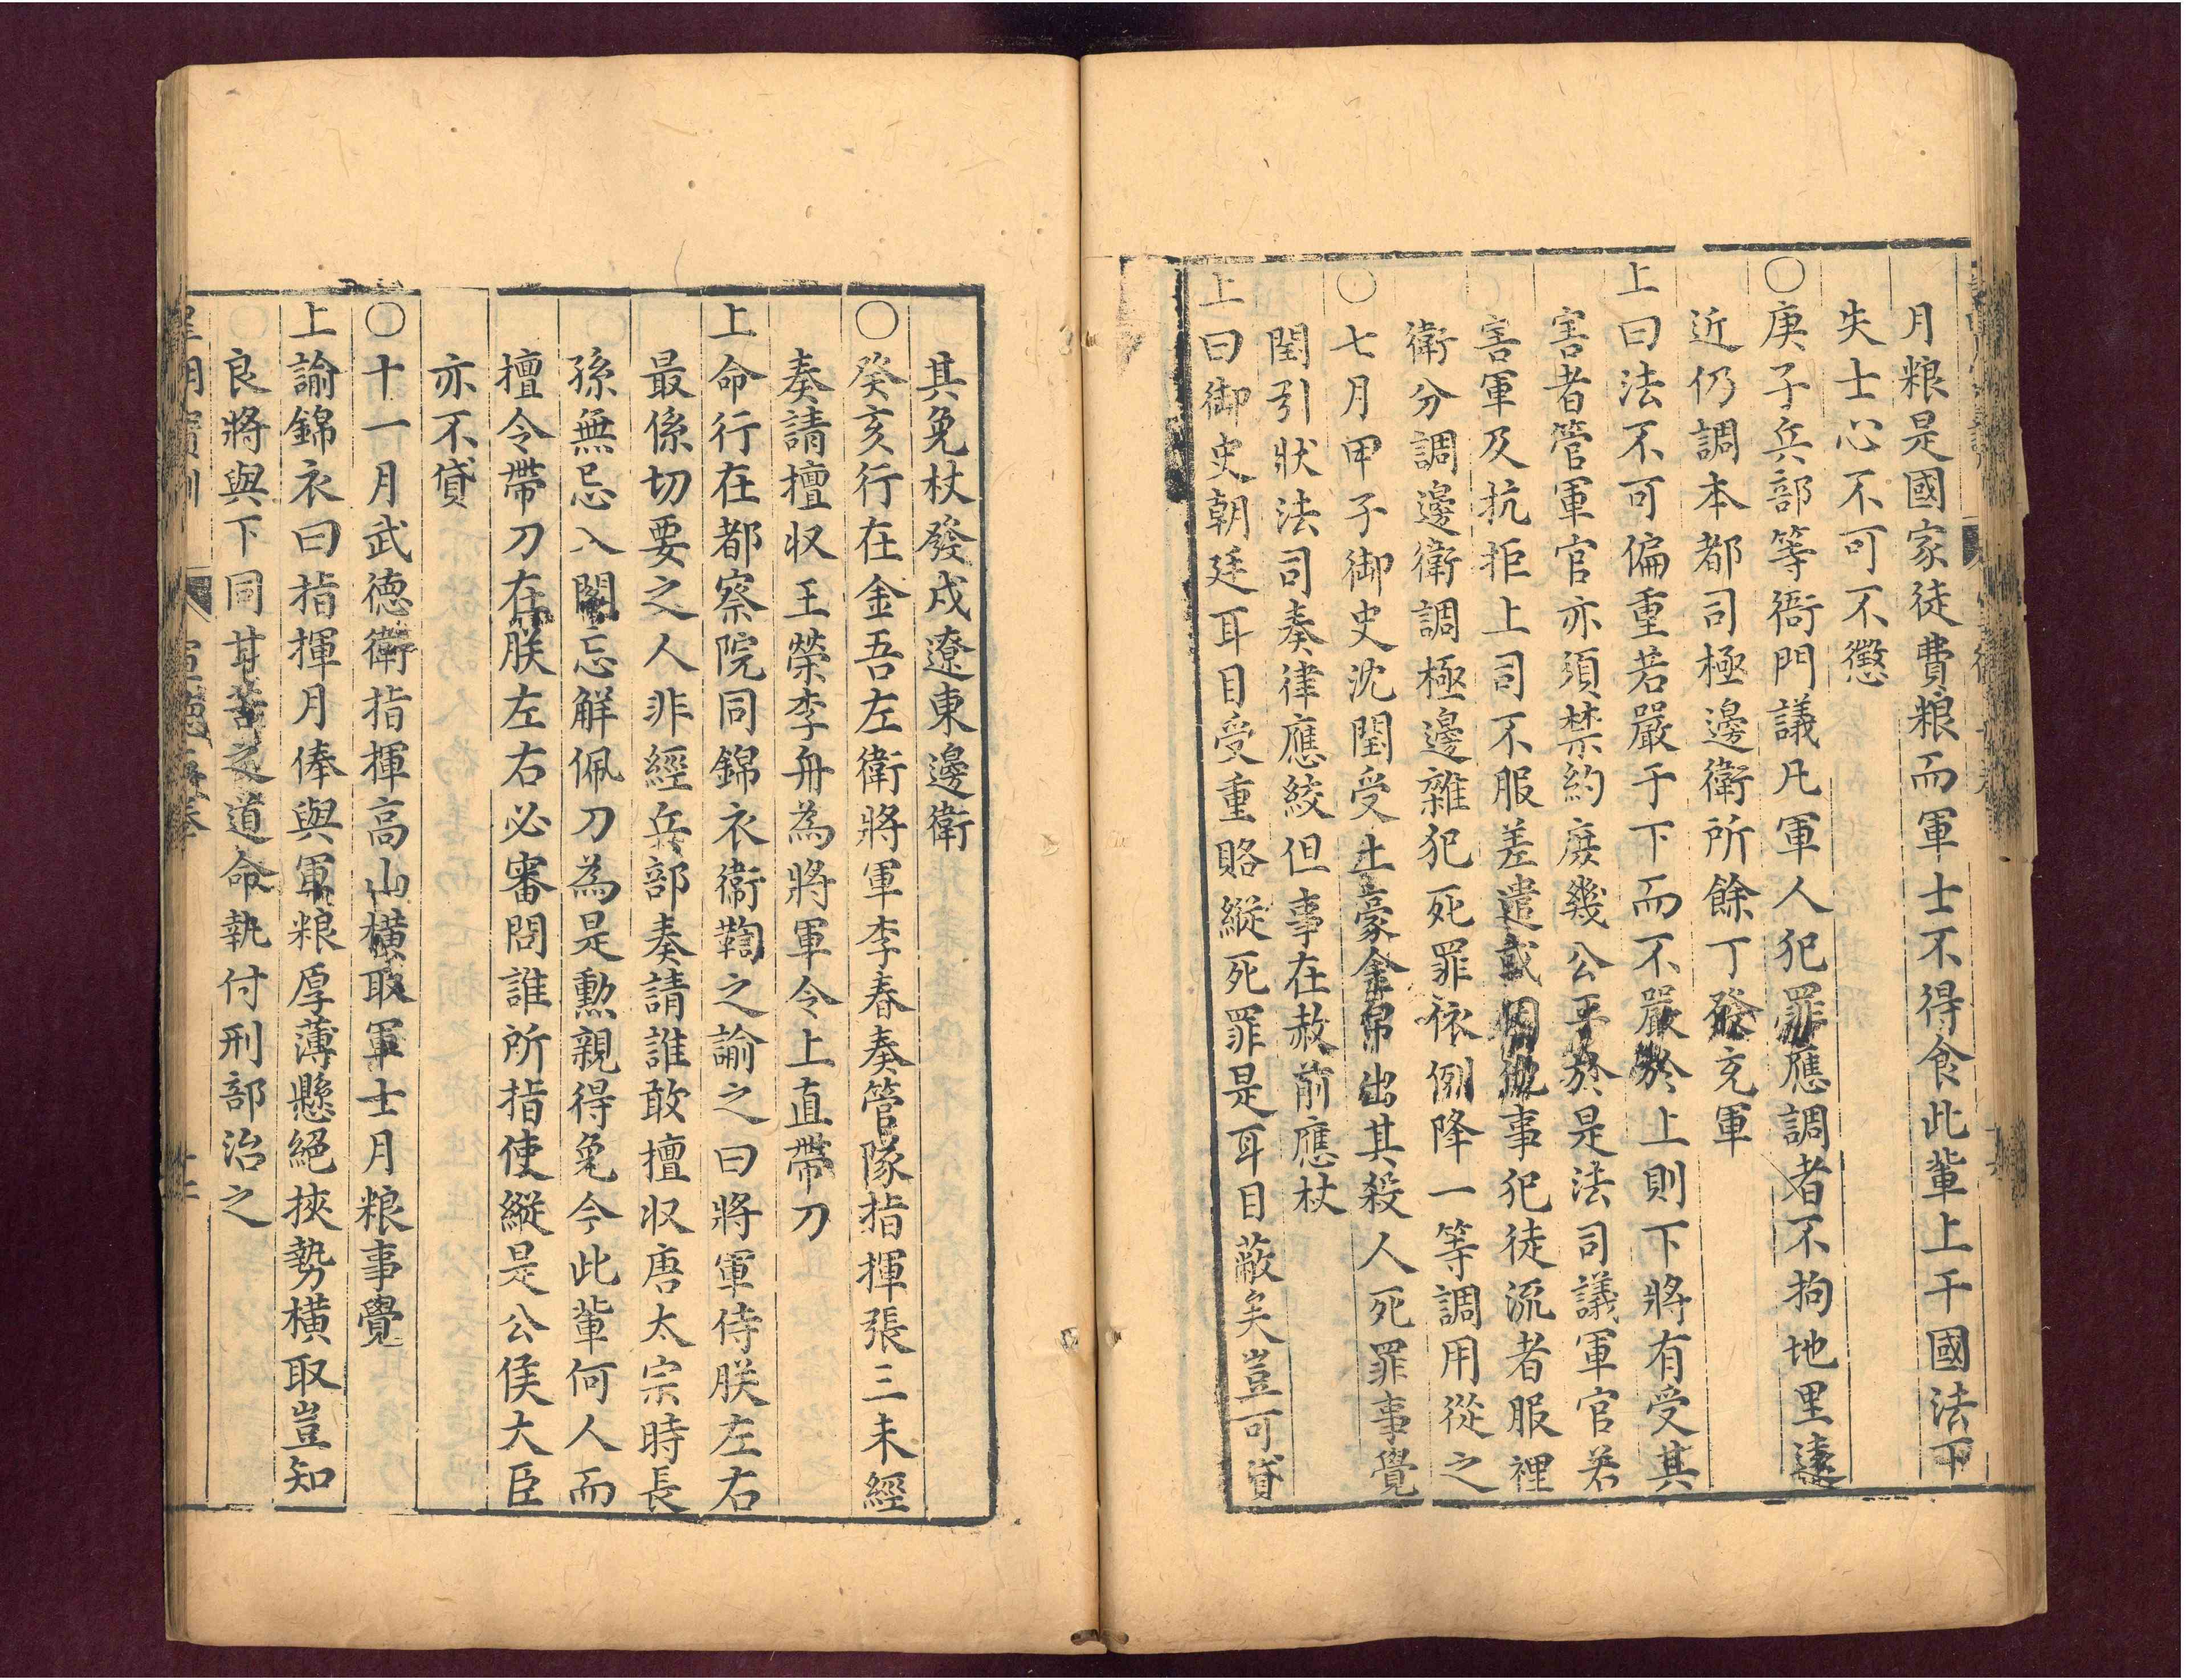 月粮是國家徒費粮而軍士不得食此輩上干國法下
失士心不可不懲
○庚子兵部等衙門議凡軍人犯罪應調者不拘地里遠
近仍調本都司極邊衛所餘丁發充軍
上曰法不可偏重若嚴于下而不嚴於上則下將有受其
害者管軍官亦須禁約庶幾公平於是法司議軍官若
害軍及抗拒上司不服差遣或因他事犯徒流者服裡
衛分調邊衛調極邊雜犯死罪依例降一等調用從之
○七月甲子御史沈閏受土豪金帛出其殺人死罪事覺
閏引狀法司奏律應絞但事在赦前應杖
上曰御史朝廷耳目受重賂縱死罪是耳目蔽矣豈可貸
其免杖發戍遼東邊衛
○癸亥行在金吾左衛將軍李春奏管隊指揮張三未經
奏請擅收王榮李舟為將軍令上直帶刀
上命行在都察院同錦衣衛鞫之諭之曰將軍侍朕左右
最係切要之人非經兵部奏請誰敢擅收唐太宗時長
孫無忌入閣忘解佩刀為是勲親得免今此輩何人而
擅令帶刀在朕左右必審問誰所指使縱是公侯大臣
亦不貸
○十一月武德衛指揮高山橫取軍士月粮事覺
上諭錦衣曰指揮月俸與軍粮厚薄懸絕挾勢橫取豈知
良將與下同甘苦之道命執付刑部治之
皇明寶訓